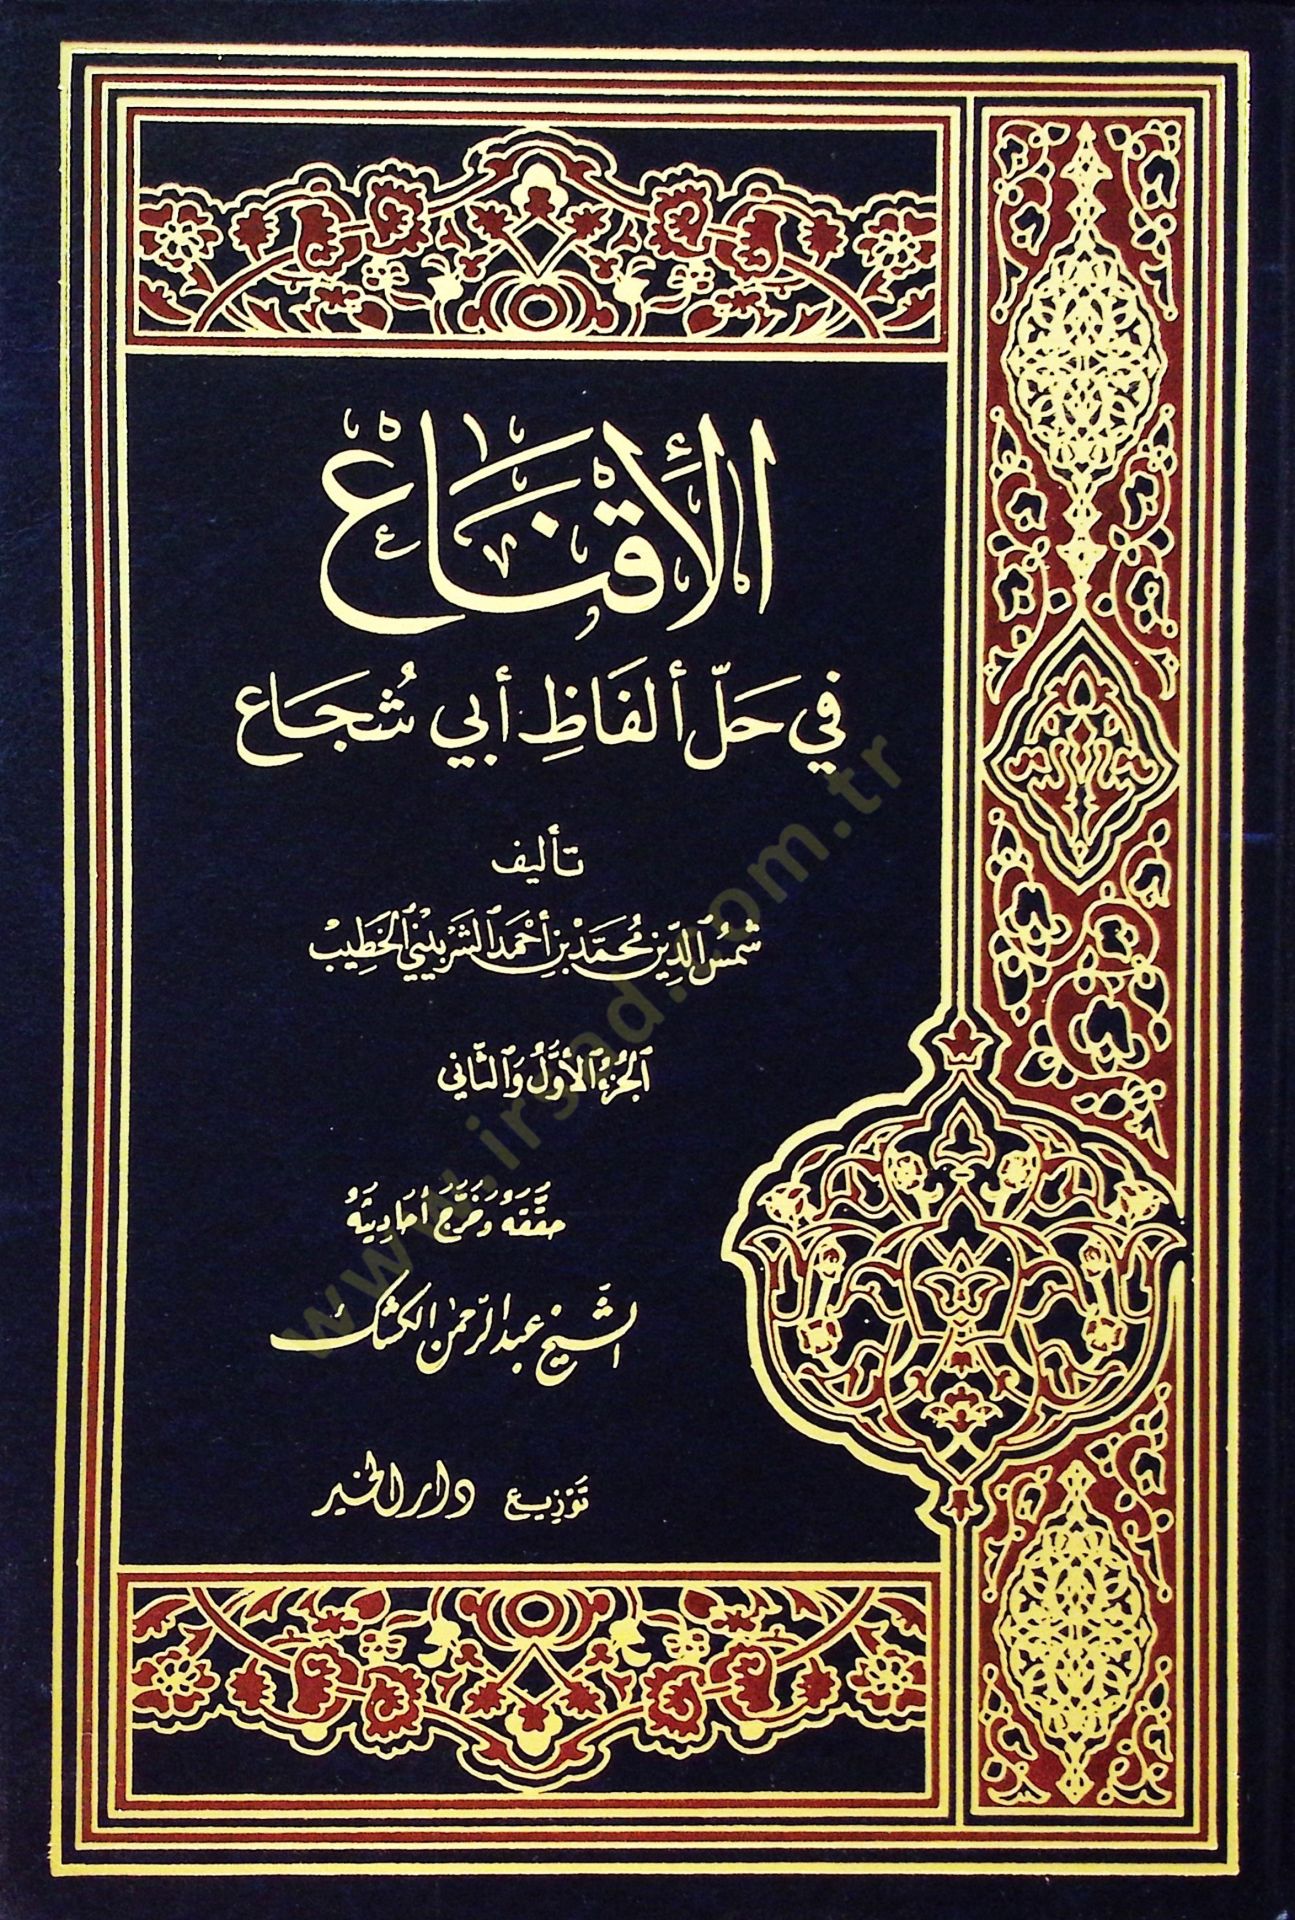 الأقناع
في حَلّ ألفَاظِ أبي شُجَاع
تأليف
شمس الدّين محمّد بن أحمد الشربيني الخطيب
الجزء الأوّل والثّاني
حقّقه وخرّج أحاديثه
الشيخ عبد الرحمن الكشك
توزيع دار الخير
www.irsad.com.tr